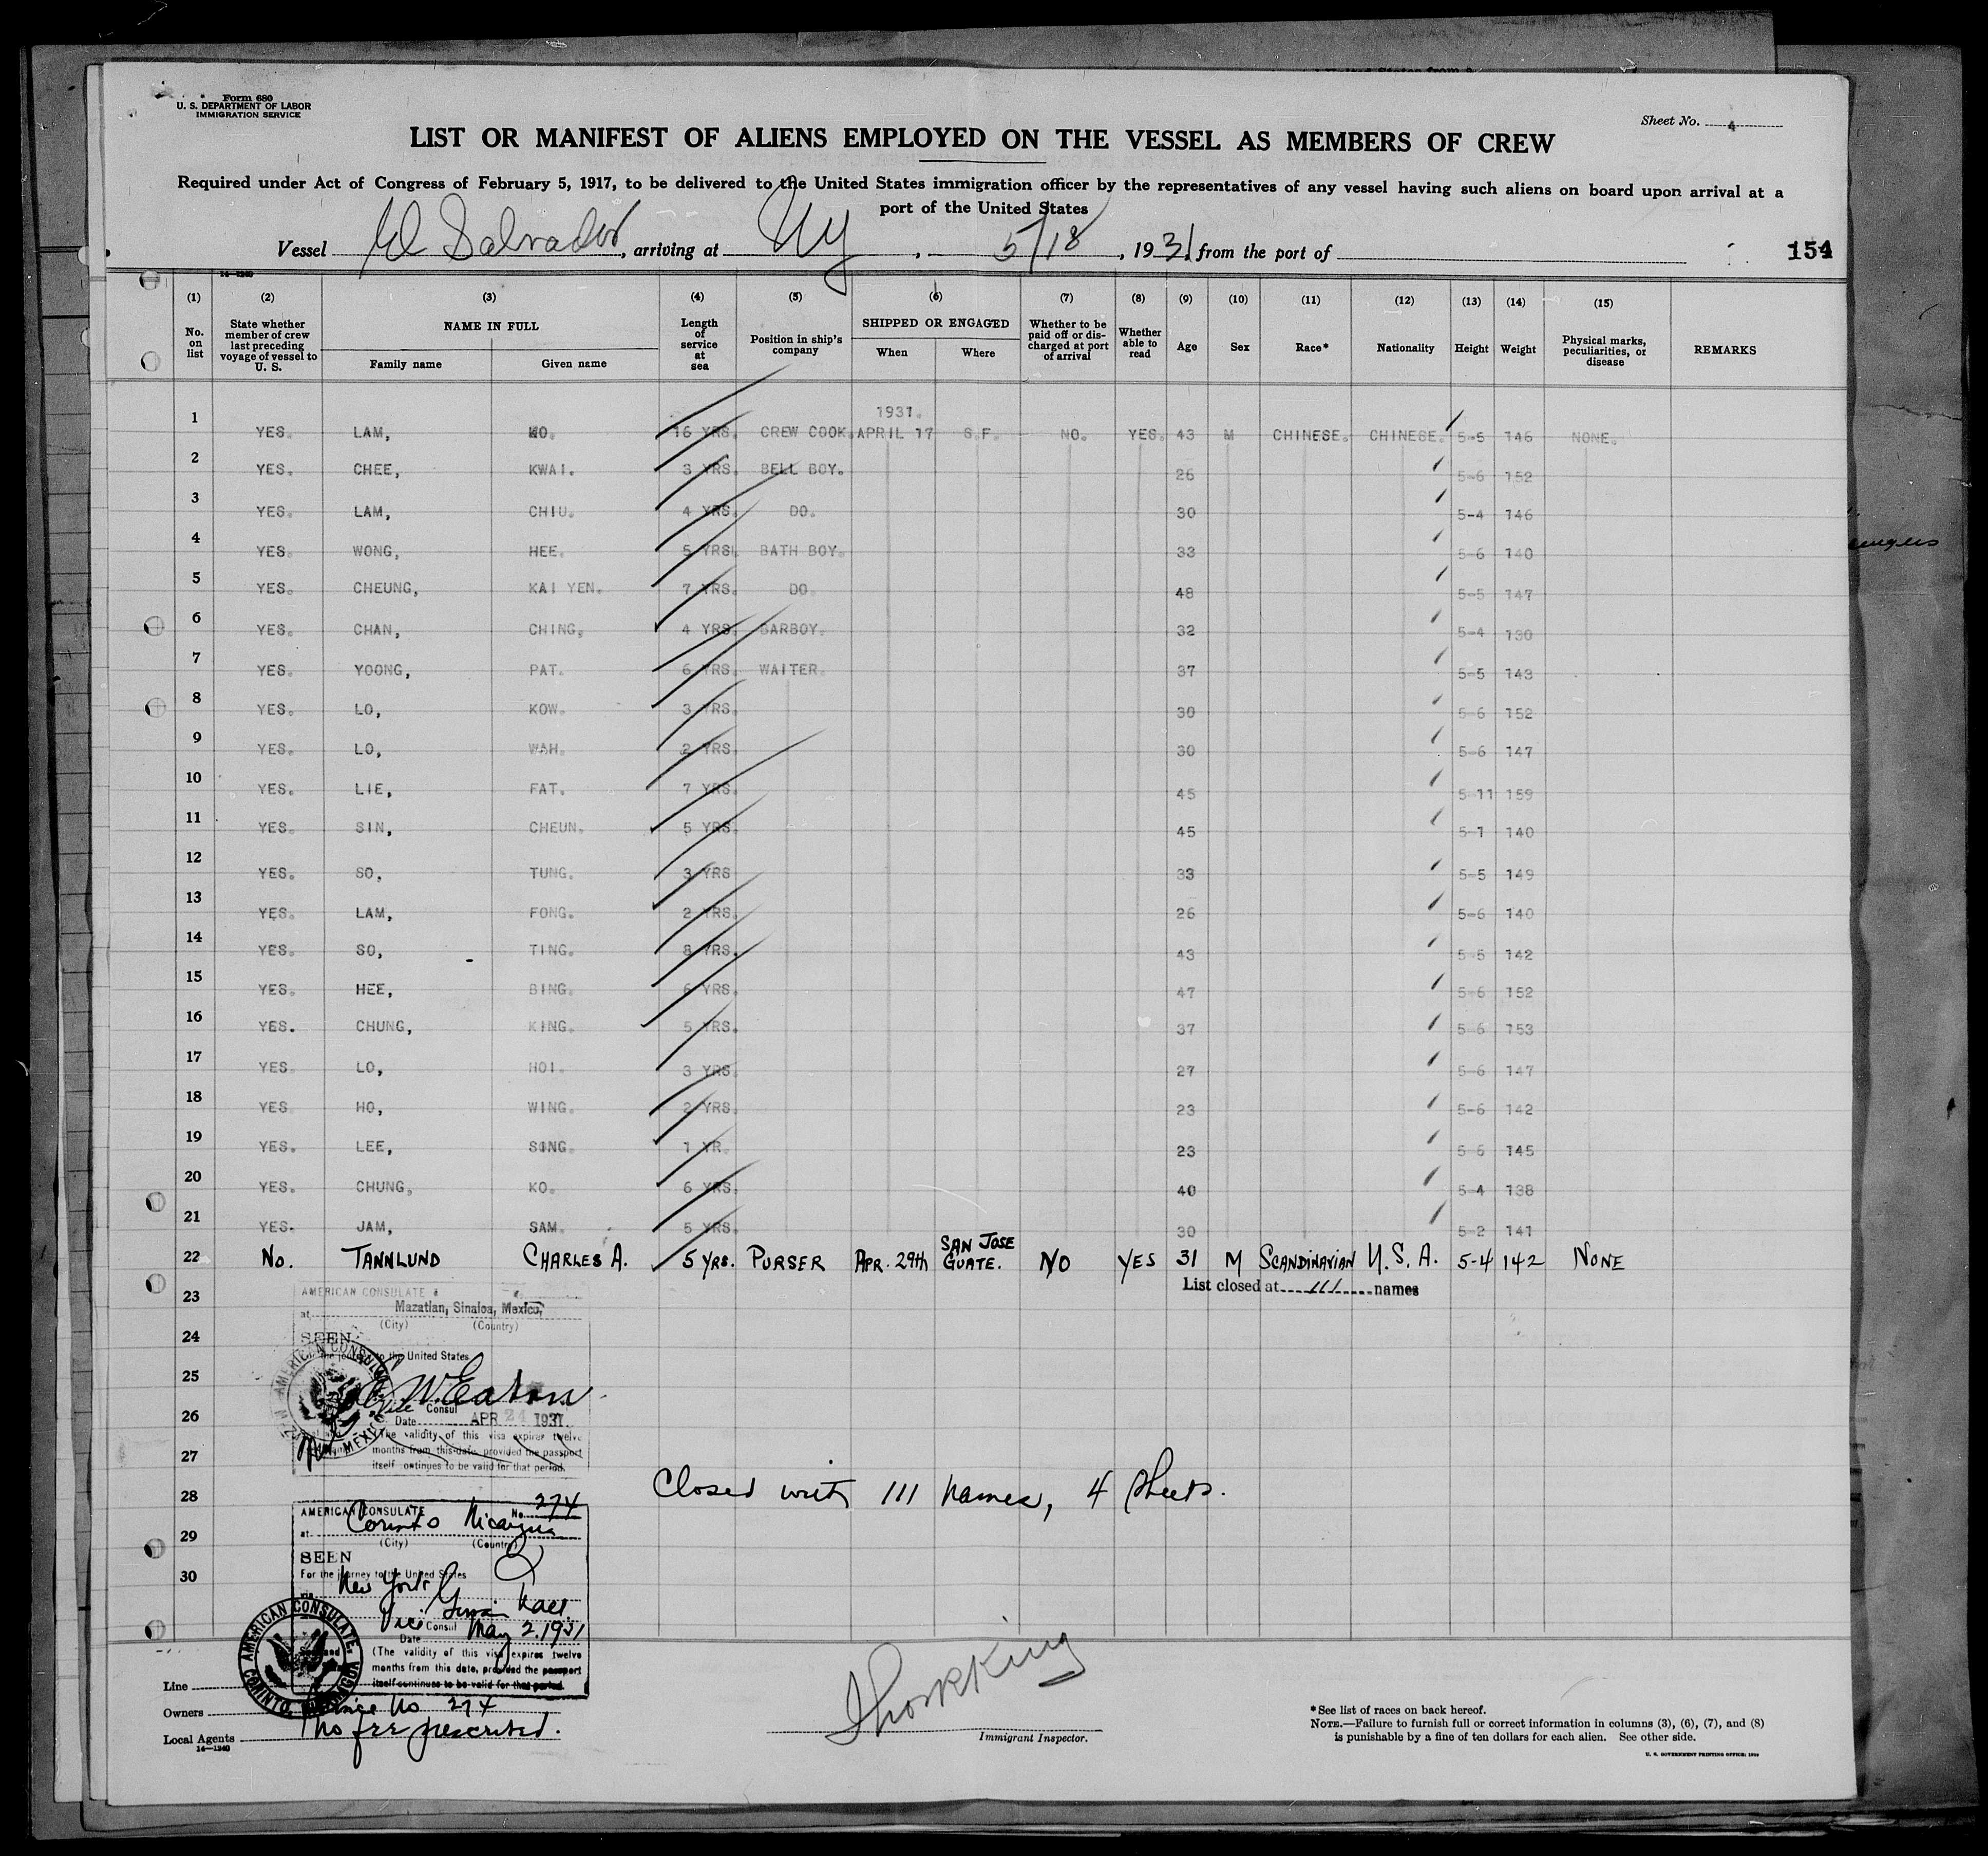 Form 680
U. S. DEPARTMENT OF LABOR
IMMIGRATION SERVICE
Sheet No. 4
LIST OR MANIFEST OF ALIENS EMPLOYED ON THE VESSEL AS MEMBERS OF CREW
Required under Act of Congress of February 5, 1917, to be delivered to the United States immigration officer by the representatives of any vessel having such aliens on board upon arrival at a
port of the United States
Vessel El Salvador, arriving at NY, 5/18, 1931, from the port of
154
14—1240
(1) (2) (3) (4) (5) (6) (7) (8) (9) (10) (11) (12) (13) (14) (15)
No. on list
State whether member of crew last preceding voyage of vessel to U. S.
NAME IN FULL
Family name Given name
Length of service at sea
Position in ship's company
SHIPPED OR ENGAGED
When Where
Whether to be paid off or discharged at port of arrival
Whether able to read
Age Sex Race* Nationality Height Weight
Physical marks, peculiarities, or disease
REMARKS
1931.
1 YES. LAM, WO. 16 YRS. CREW COOK. APRIL 17 S.F. NO. YES. 43 M CHINESE. CHINESE. 5-5 146 NONE.
2 YES. CHEE, KWAI. 3 YRS. BELL BOY. 26 5-6 152
3 YES. LAM, CHIU. 4 YRS. DO. 30 5-4 146
4 YES. WONG, HEE. 5 YRS. BATH BOY. 33 5-6 140
5 YES. CHEUNG, KAI YEN. 7 YRS. DO. 48 5-5 147
6 YES. CHAN, CHING, 4 YRS. BARBOY. 32 5-4 130
7 YES. YOONG, PAT. 6 YRS. WAITER. 37 5-5 143
8 YES. LO, KOW. 3 YRS. 30 5-6 152
9 YES. LO, WAH. 2 YRS. 30 5-6 147
10 YES. LIE, FAT. 7 YRS. 45 5-11 159
11 YES. SIN, CHEUN. 5 YRS. 45 5-1 140
12 YES. SO, TUNG. 3 YRS 33 5-5 149
13 YES. LAM, FONG. 2 YRS. 26 5-6 140
14 YES. SO, TING. 8 YRS. 43 5-5 142
15 YES. HEE, BING. 6 YRS. 47 5-6 152
16 YES. CHUNG, KING. 5 YRS. 37 5-6 153
17 YES. LO, HOI. 3 YRS. 27 5-6 147
18 YES HO, WING. 2 YRS. 23 5-6 142
19 YES. LEE, SING. 1 YR. 23 5-6 145
20 YES. CHUNG, KO. 6 YRS. 40 5-4 138
21 YES. JAM, SAM. 5 YRS. 30 5-2 141
22 No. TANNLUND CHARLES A. 5 YRS. PURSER APR. 29th SAN JOSE GUATE. NO YES 31 M SCANDINAVIAN U.S.A. 5-4 142 NONE
List closed at 111 names
23
24
25
26
27
28
29
30
AMERICAN CONSULATE
at Mazatlan, Sinaloa, Mexico,
(City) (Country)
SEEN
For the journey to the United States
W. Eaton
Vice Consul
Date APR 24 1931.
(The validity of this visa expires twelve
months from this date, provided the passport
itself continues to be valid for that period.
Closed with 111 names, 4 sheets.
AMERICAN CONSULATE No. 274
at Corinto Nicaragua
(City) (Country)
SEEN
For the journey to the United States
New York
Vice Consul
Date May 2, 1931
(The validity of this visa expires twelve
months from this date, provided the passport
itself continues to be valid for that period.
AMERICAN CONSULATE, CORINTO, NICARAGUA
Line
Owners
Service No 274
Local Agents
No fee prescribed.
14—1240
Immigrant Inspector.
*See list of races on back hereof.
NOTE.—Failure to furnish full or correct information in columns (3), (6), (7), and (8)
is punishable by a fine of ten dollars for each alien. See other side.
U. S. GOVERNMENT PRINTING OFFICE: 1930